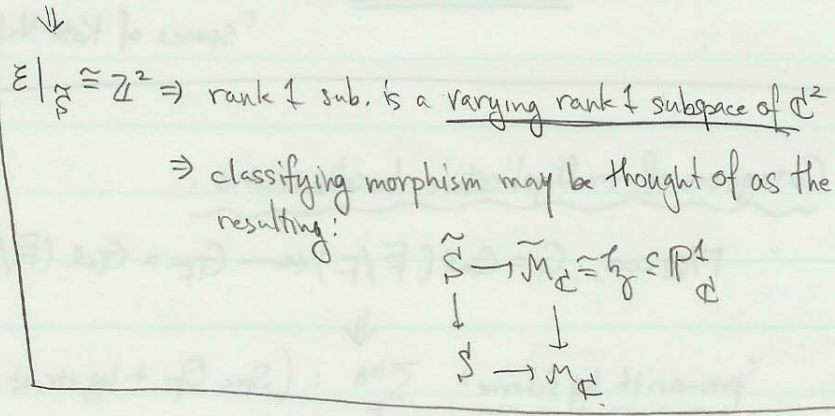 "Space of
⇓
ℰ|_S̃ ≅ ℤ² ⇒ rank 1 sub. is a varying rank 1 subspace of ℂ²
⇒ classifying morphism may be thought of as the
resulting:
S̃ → M̃_ℂ ≅ 𝔥 ⊆ ℙ¹_ℂ
↓ ↓
S → M_ℂ